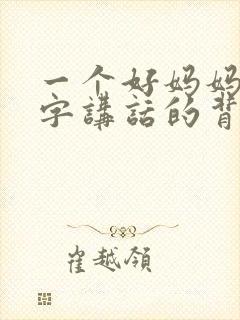 一个好妈妈
字講話的背
崔越領